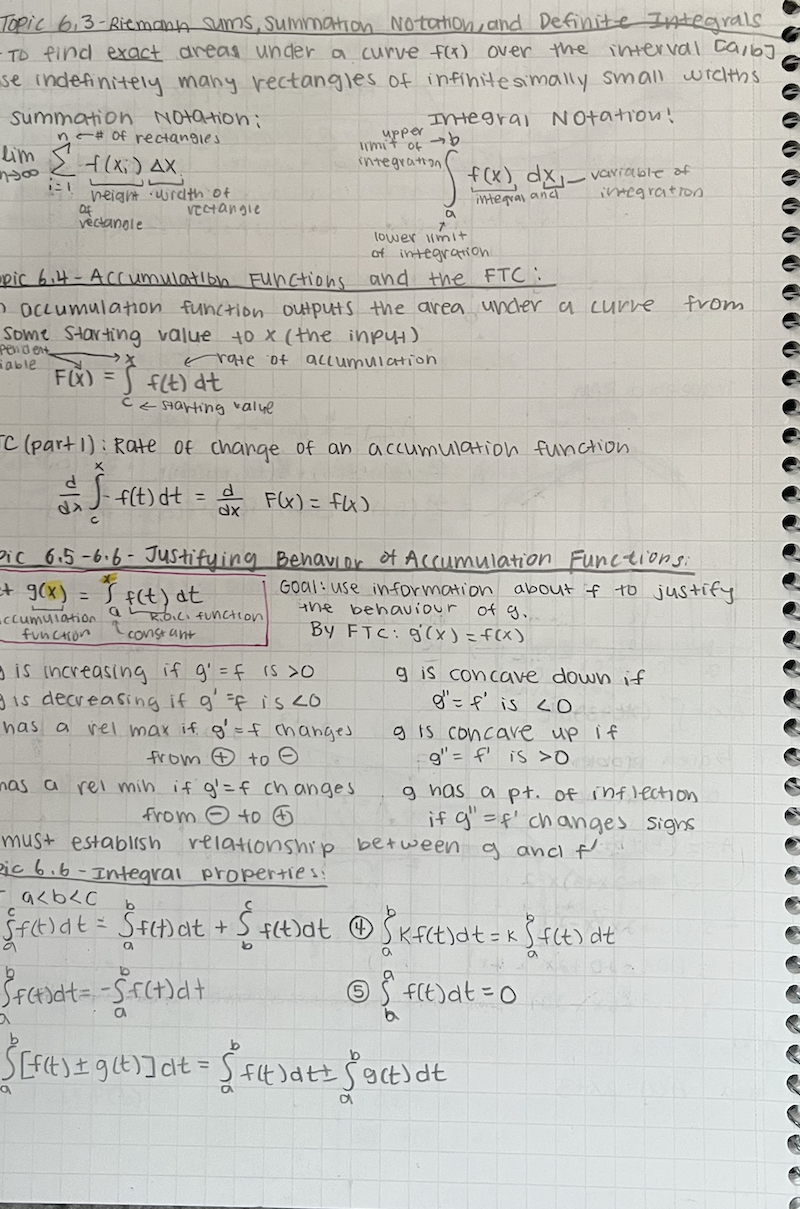 Topic 6.3-Riemann sums, summation Notation, and Definite Integrals
- TO find exact areas under a curve f(x) over the interval [a,b]
se indefinitely many rectangles of infinitesimally small widths
summation Notation:
n ← # of rectangles
lim n→∞ Σ i=1 f(xᵢ) ΔX
height of rectangle · width of rectangle
Integral Notation!
upper limit of integration → b
∫ f(x) dx — variable of integration
integral and
a
↑
lower limit of integration
pic 6.4 - Accumulation Functions and the FTC:
n accumulation function outputs the area under a curve from
some starting value to x (the input)
pendent iable
← rate of accumulation
F(x) = ∫ₓ f(t) dt
c ← starting value
TC (part 1): Rate of change of an accumulation function
d/dx ∫_c^x f(t) dt = d/dx F(x) = f(x)
pic 6.5-6.6- Justifying Behavior of Accumulation Functions:
t g(x) = ∫_a^x f(t) dt
ccumulation function
R.O.C. function
constant
Goal: use information about f to justify
the behaviour of g.
By FTC: g'(x) = f(x)
g is increasing if g' = f is >0
g is decreasing if g' = f is <0
has a rel max if g' = f changes
from ⊕ to ⊖
has a rel min if g' = f changes
from ⊖ to ⊕
g is concave down if
g'' = f' is <0
g is concave up if
g'' = f' is >0
g has a pt. of inflection
if g'' = f' changes signs
must establish relationship between g and f'
pic 6.6 - Integral properties:
a<b<c
∫_a^c f(t) dt = ∫_a^b f(t) dt + ∫_b^c f(t) dt
④ ∫_a^b Kf(t) dt = K ∫_a^b f(t) dt
∫_a^b f(t) dt = -∫_a^b f(t) dt
⑤ ∫_b^a f(t) dt = 0
∫_a^b [f(t) ± g(t)] dt = ∫_a^b f(t) dt ± ∫_a^b g(t) dt